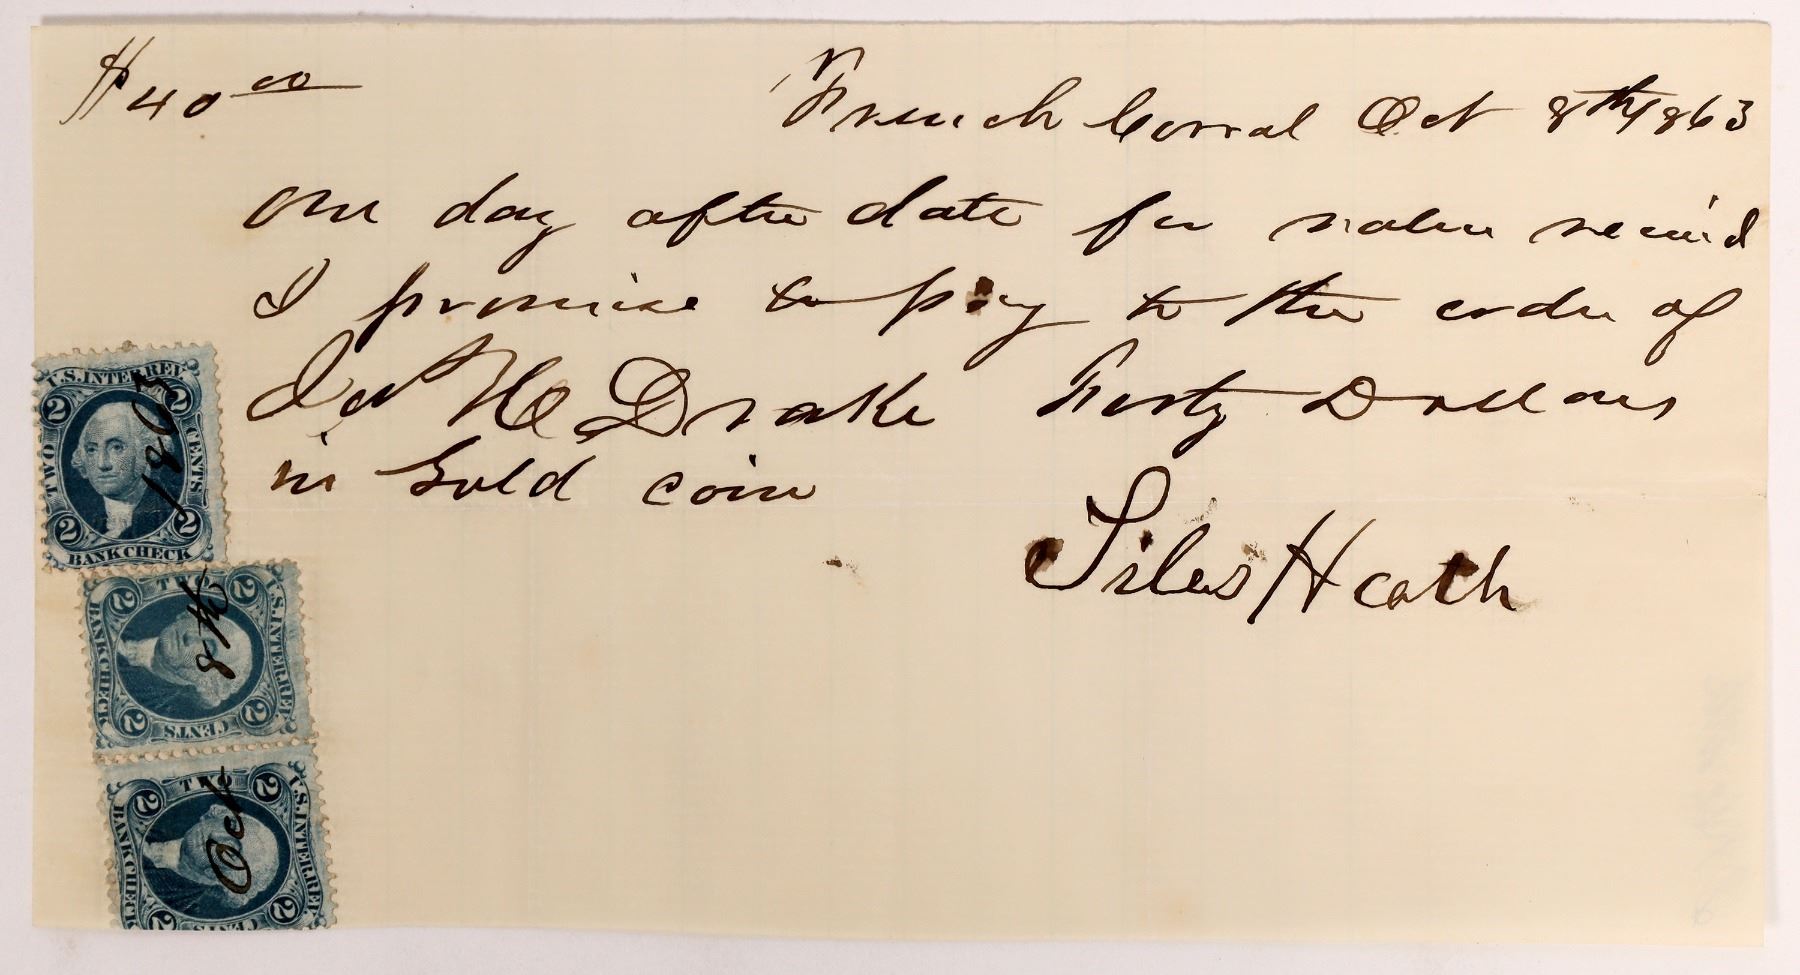 $40 00
French Corral Oct 8th 1863
One day after date for value receiv'd
I promise to pay to the order of
H Drake Forty Dollars
in Gold coin
Silas Heath
U.S. INTER. REV.
2 2
TWO CENTS
2 2
BANK CHECK
1863
U.S. INTER. REV.
2 2
TWO CENTS
2 2
BANK CHECK
8th
U.S. INTER. REV.
2 2
TWO CENTS
2 2
BANK CHECK
Oct